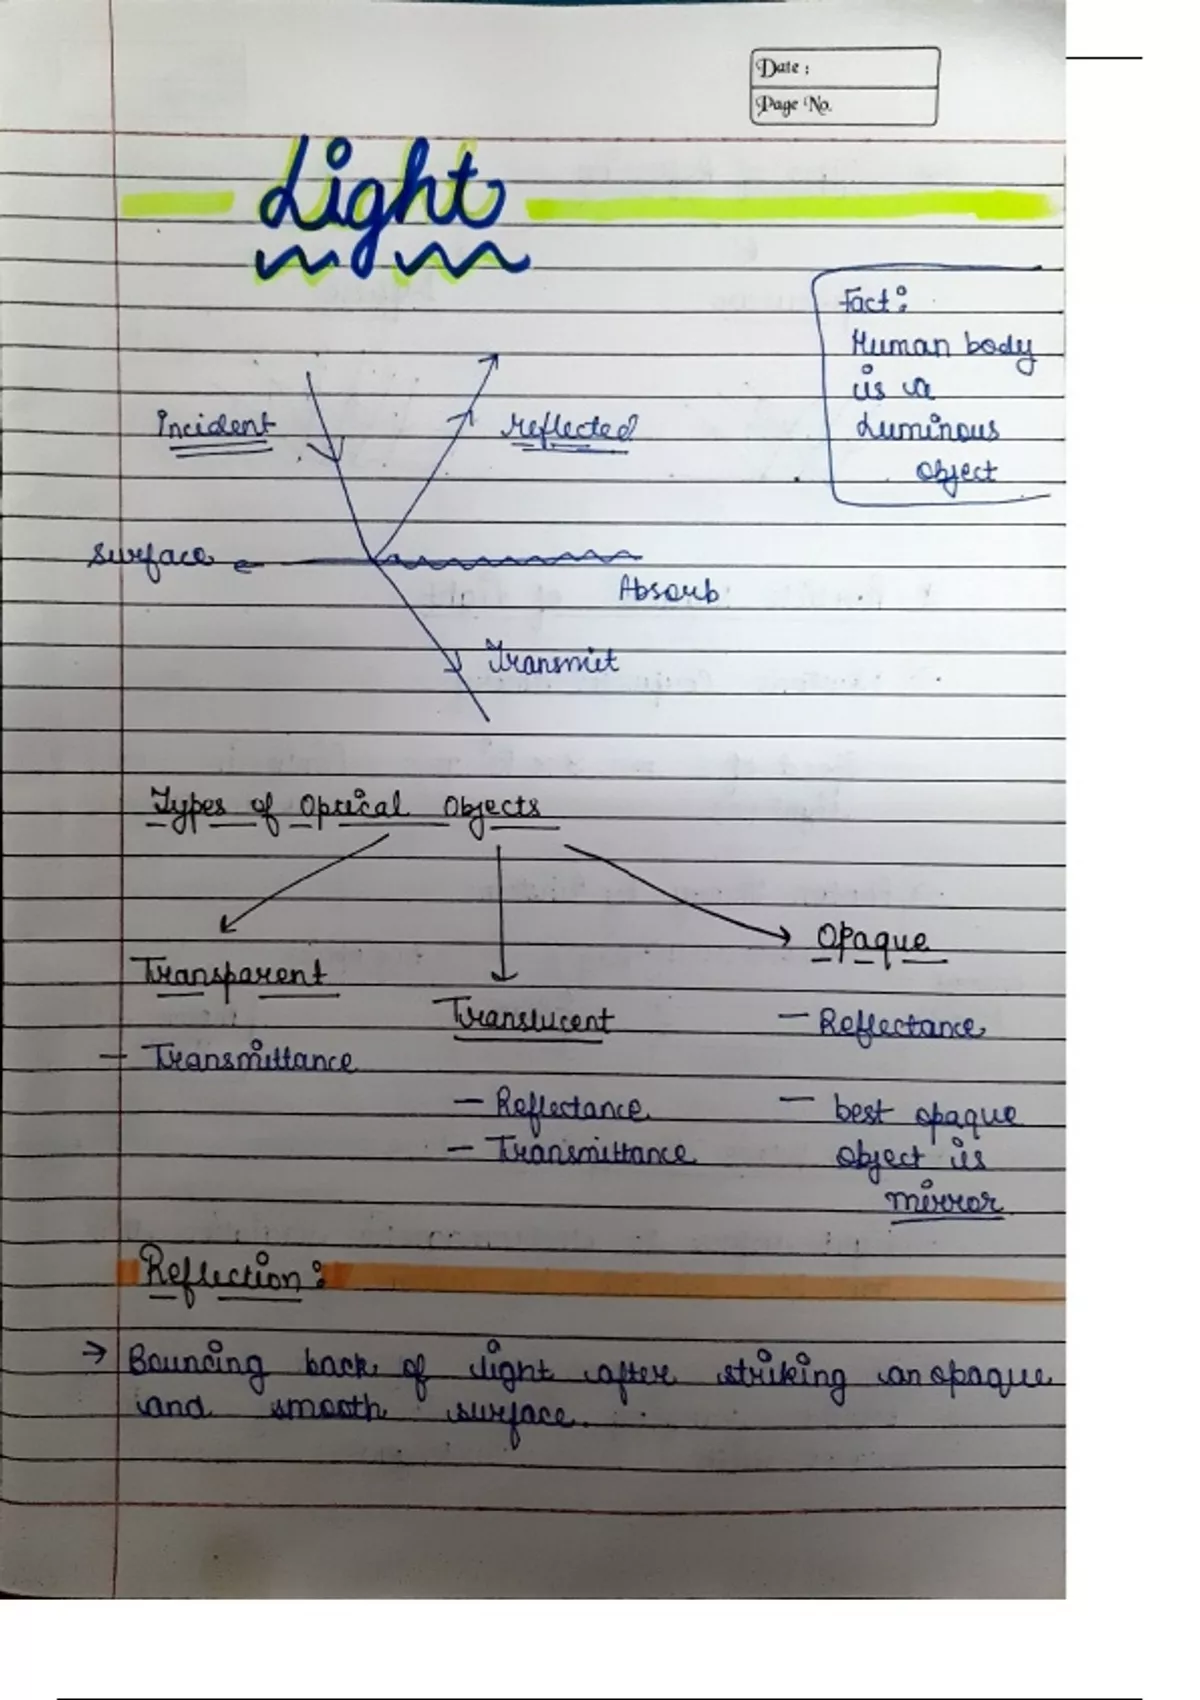 Date :
Page No.
Light
Fact:
Human body
is a
Luminous
object
Incident
reflected
surface
Absorb
Transmit
Types of Optical Objects
Transparent
- Transmittance
Translucent
- Reflectance
- Transmittance
Opaque
- Reflectance
- best opaque
object is
mirror
Reflection:
→ Bouncing back of light after striking an opaque
and smooth surface.